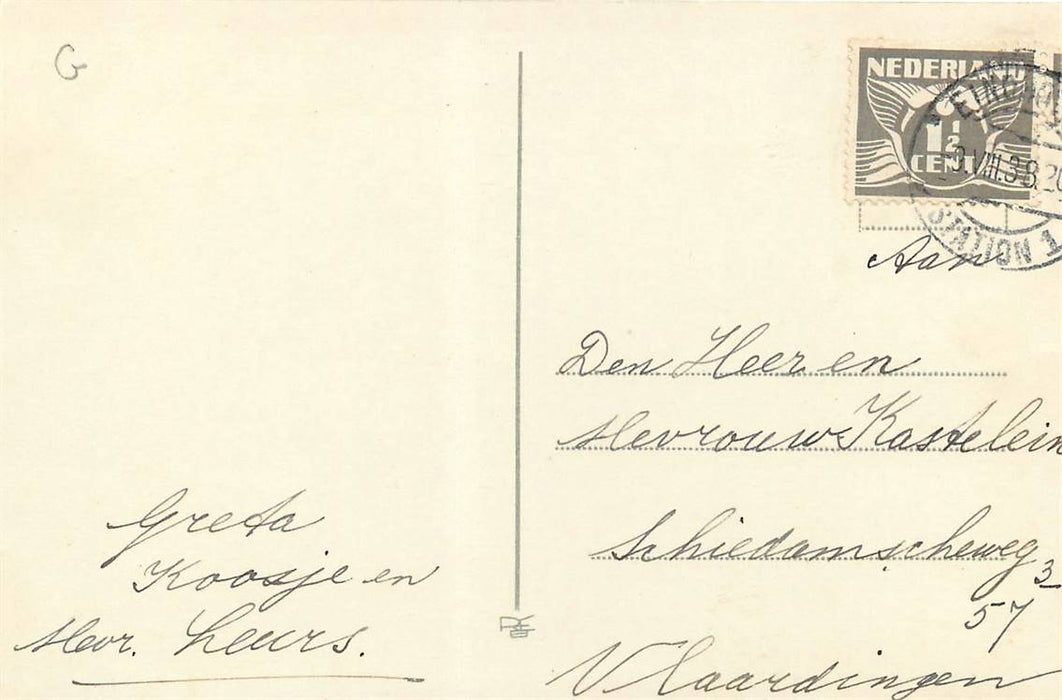 G
NEDERLAND
1½
CENT
9.VIII.38.20
STATION 1
Aan
Den Heer en
Mevrouw Kastelein
Schiedamscheweg
57 3
Vlaardingen
Greta
Koosje en
Mevr. Leurs.